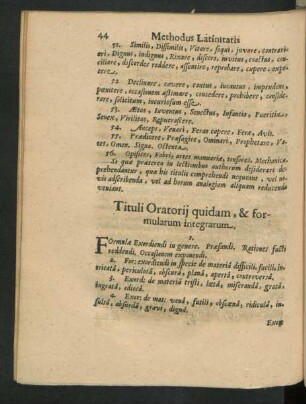 44 Methodus Latinitatis
51. Similis, Dissimilis, Vitare, sequi, jovare, contrari-
ari, Dignus, indignus, Rixare, discere, invitus, coactus, con-
ciliare, discordes reddere, assentire, reprobare, cupere, expe-
tere
12. Declinare, cavere, cautus, incautus, imprudens,
pœnitere, occasionem æstimare, concedere, prohibere, conside-
rare, solicitum, incuriosum esse.
13. Ætas, Juventus, Senectus, Infantia, Pueritia,
Senex, Virilitas, Repuerascere.
14. Auceps, Venari, Feras capere, Fera, Avis.
15. Prædicere, Præsagire, Ominari, Prophetare, Va-
tes, Omen, Signa, Ostenta.
16. Opifices, Fabri, artes manuariæ, tonsores, Mechanica.
Is qua præterea in lectionibus authorum desiderari de-
prehendantur, qua his titulis comprehendi nequeunt, vel no-
viis adscribenda, vel ad horum analogiam aliquam reducenda
veniant.
Tituli Oratorij quidam, & for-
mularum integrarum.
1.
Formulæ Exordiendi in genere. Præfandi. Rationes facti
reddendi, Occasionem exponendi.
2. For: exordiendi in specie de materiâ difficili, facili, in-
vitatâ, periculosâ, obscurâ, planâ, apertâ, controversâ,
3. Exord: de materiâ tristi, lætâ, miserandâ, gratâ, in-
gratâ, odiosâ.
4. Exor: de mat: vanâ, futili, obscænâ, ridiculâ, in-
sulsâ, absurdâ, gravi, dignâ.